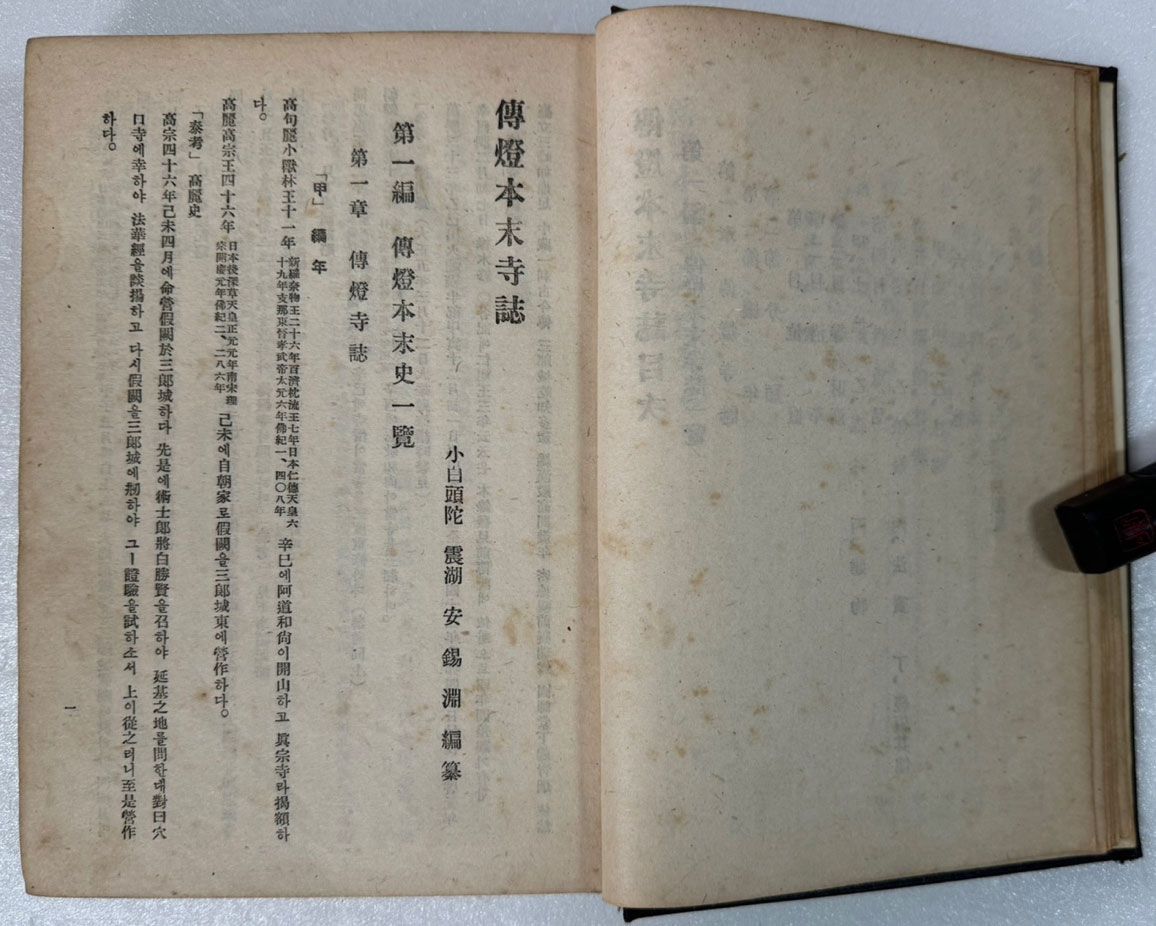 傳燈本末寺誌
小白頭陀 震湖 安錫淵 編纂
第一編 傳燈本末史一覽
第一章 傳燈寺誌
「甲」 編年
高句麗小獸林王十一年 新羅奈物王二十六年百濟枕流王七年日本仁德天皇六十九年支那東晉孝武帝太元六年佛紀一、四〇八年 辛巳에阿道和尙이開山하고 眞宗寺라揭額하
다。
高麗高宗王四十六年 日本後深草天皇正元元年南宋理宗開慶元年佛紀二、二八六年 己未에自朝家로假闕을三郞城東에營作하다。
「泰考」 高麗史
高宗四十六年己未四月에命營假闕於三郞城하다 先是에術士郞將白勝賢을召하야 延基之地를問한대對曰穴
口寺에幸하야 法華經을談揚하고 다시假闕을三郞城에刱하야 그ㅣ證驗을試하소서 上이從之러니至是營作
하다。
一